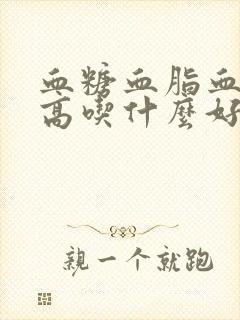 血糖血脂血
高喫什麼好
親一个就跑